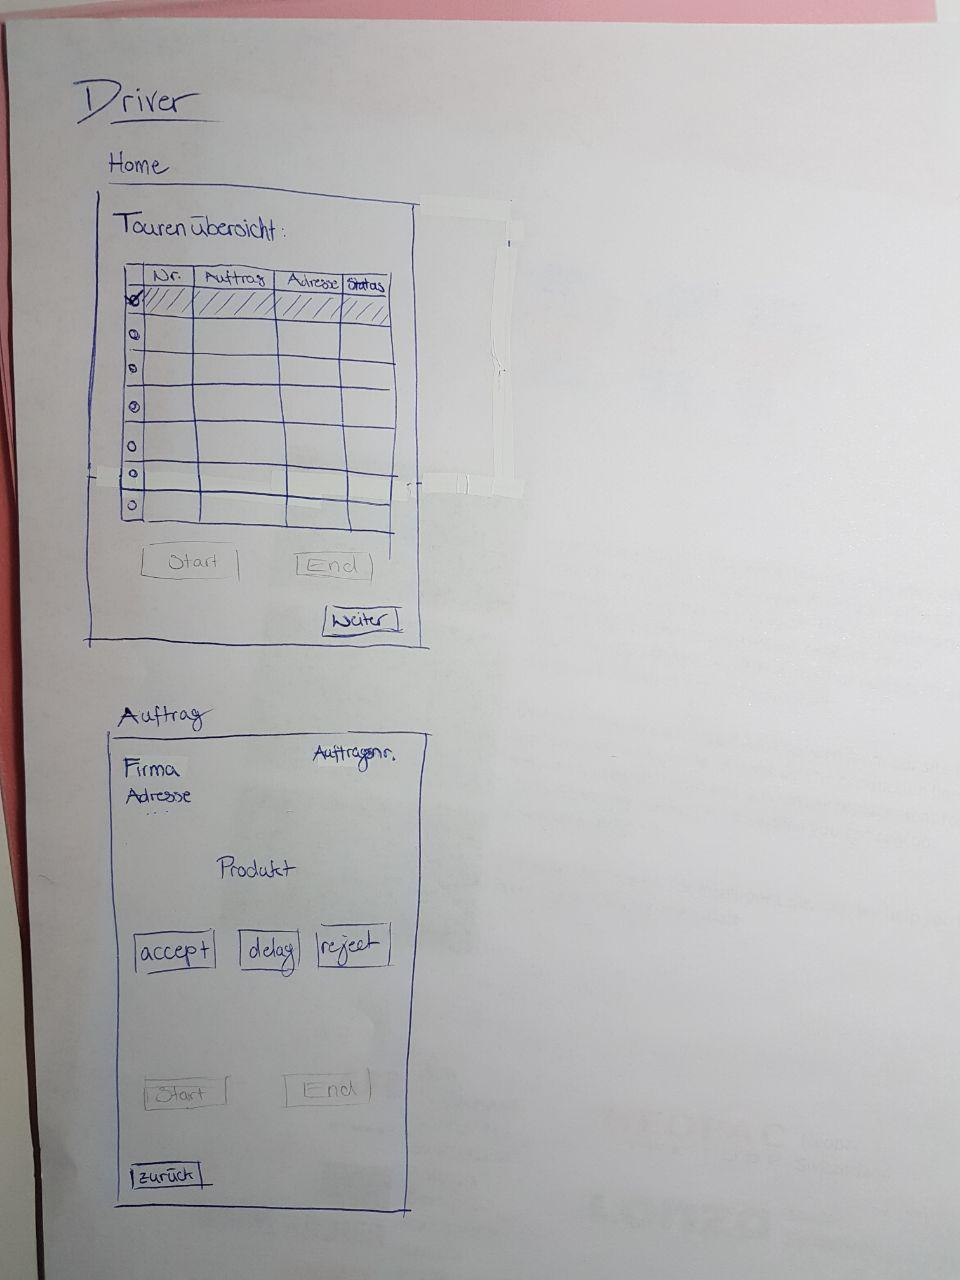 Driver
Home
Tourenübersicht:
Nr. Auftrag Adresse Status
Start End
Weiter
Auftrag
Auftragsnr.
Firma
Adresse
...
Produkt
accept delay reject
Start End
zurück